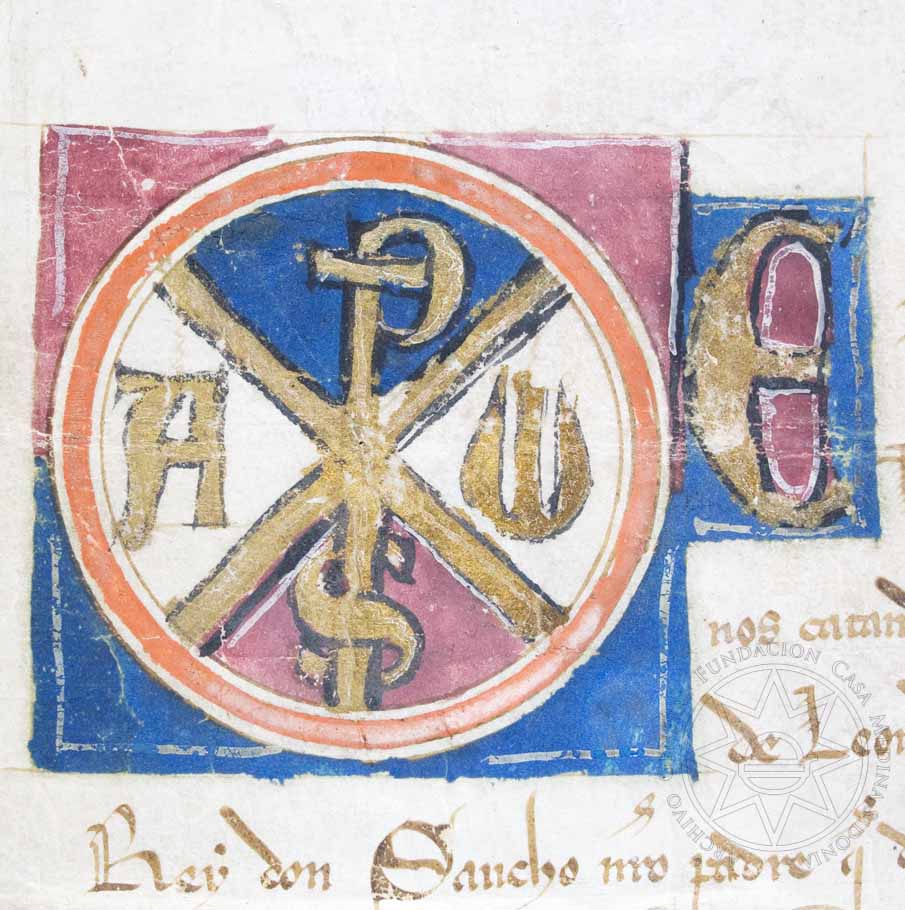 A ω
E
nos catan
de Leon
Rey don Sancho nro padre q
FUNDACION CASA MEDINA SIDONIA
ARCHIVO